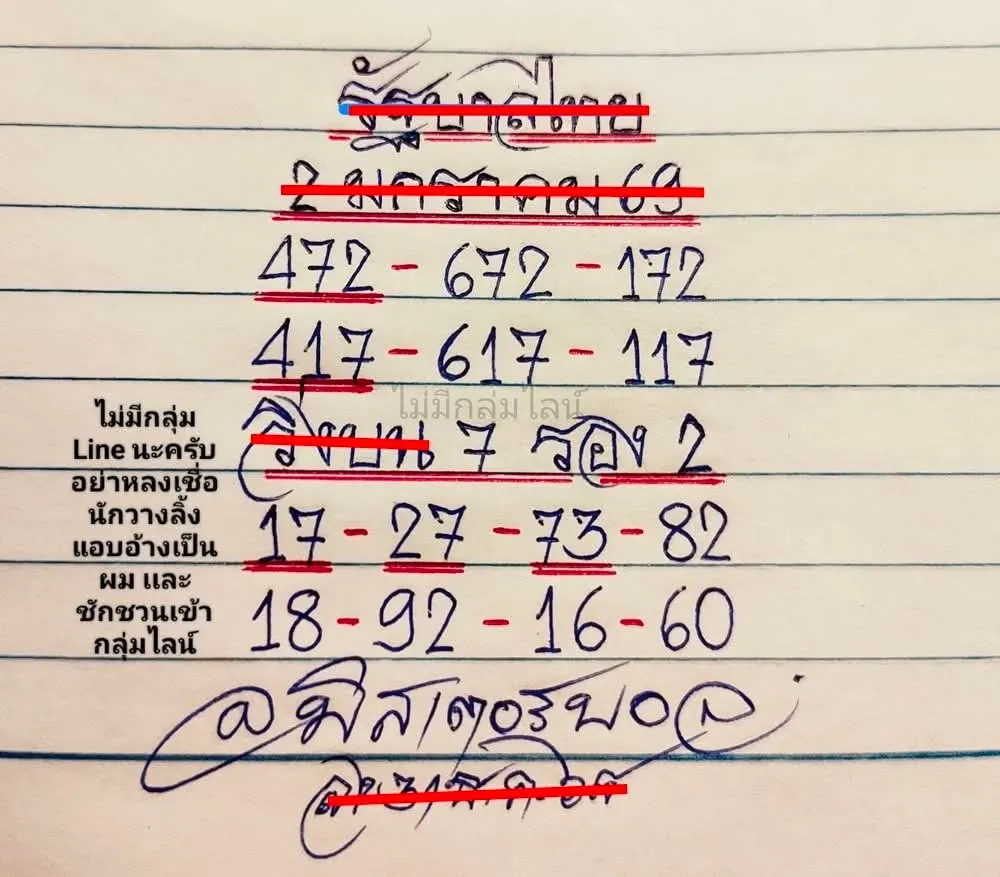 รัฐบาลไทย
2 มกราคม 69
472 - 672 - 172
417 - 617 - 117
ไม่มีกลุ่มไลน์
วิ่งบน 7 รอง 2
17 - 27 - 73 - 82
18 - 92 - 16 - 60
ไม่มีกลุ่ม
Line นะครับ
อย่าหลงเชื่อ
นักวางลิ้ง
แอบอ้างเป็น
ผม และ
ชักชวนเข้า
กลุ่มไลน์
@มิสเตอร์บอล